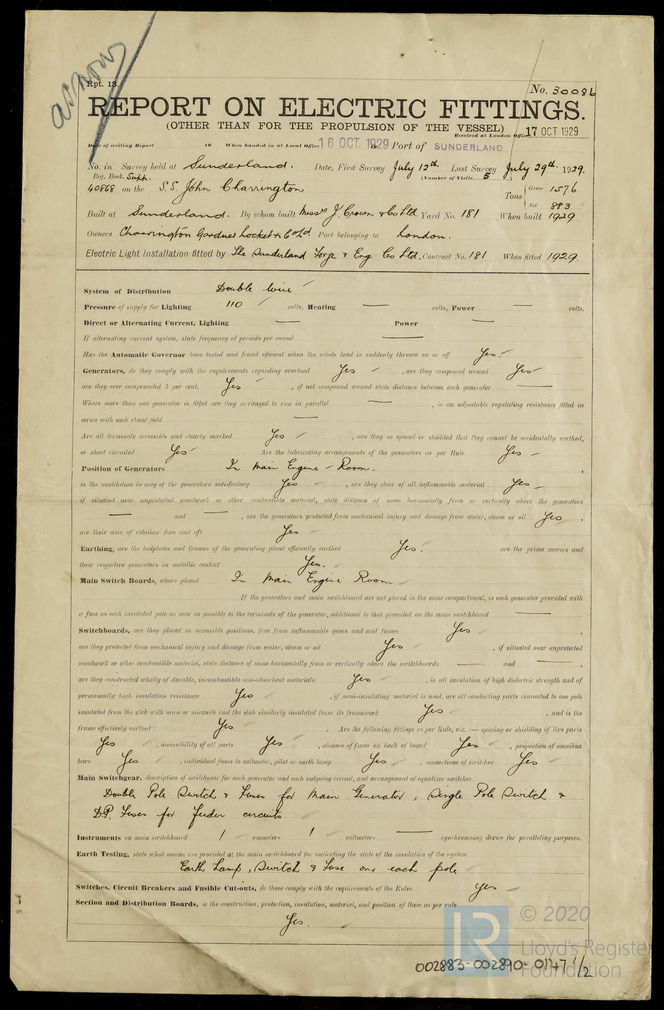 Rpt. 13.
No. 30086
REPORT ON ELECTRIC FITTINGS.
(OTHER THAN FOR THE PROPULSION OF THE VESSEL)
Received at London Office 17 OCT 1929
Date of writing Report 19 When handed in at Local Office 16 OCT. 1929 Port of SUNDERLAND
No. in Survey held at Sunderland. Date, First Survey July 12th Last Survey July 29th 1929.
Reg. Book. Supp. (Number of Visits 5
40868 on the S.S. John Charrington Tons { Gross 1576
Net 883
Built at Sunderland. By whom built Messrs J. Crown & Co Ltd Yard No. 181 When built 1929
Owners Charrington Gardner Locket & Co Ltd Port belonging to London.
Electric Light Installation fitted by The Sunderland Forge & Eng Co Ltd. Contract No. 181 When fitted 1929
System of Distribution Double Wire
Pressure of supply for Lighting 110 volts, Heating — volts, Power — volts.
Direct or Alternating Current, Lighting — Power —
If alternating current system, state frequency of periods per second —
Has the Automatic Governor been tested and found efficient when the whole load is suddenly thrown on or off Yes.
Generators, do they comply with the requirements regarding overload Yes, are they compound wound Yes
are they over compounded 5 per cent. Yes, if not compound wound state distance between each generator —
Where more than one generator is fitted are they arranged to run in parallel —, is an adjustable regulating resistance fitted in
series with each shunt field —
Are all terminals accessible and clearly marked Yes, are they so spaced or shielded that they cannot be accidentally earthed,
or short circuited Yes Are the lubricating arrangements of the generators as per Rule Yes
Position of Generators In Main Engine-Room.
is the ventilation in way of the generators satisfactory Yes, are they clear of all inflammable material Yes
if situated near unprotected woodwork or other combustible material, state distance of same horizontally from or vertically above the generators
— and —, are the generators protected from mechanical injury and damage from water, steam or oil Yes.
are their axis of rotation fore and aft Yes
Earthing, are the bedplates and frames of the generating plant efficiently earthed Yes. are the prime movers and
their respective generators in metallic contact Yes.
Main Switch Boards, where placed In Main Engine Room
If the generators and main switchboard are not placed in the same compartment, is each generator provided with
a fuse on each insulated pole as near as possible to the terminals of the generator, additional to that provided on the main switchboard —
Switchboards, are they placed in accessible positions, free from inflammable gases and acid fumes Yes
are they protected from mechanical injury and damage from water, steam or oil Yes, if situated near unprotected
woodwork or other combustible material, state distance of same horizontally from or vertically above the switchboards — and —,
are they constructed wholly of durable, incombustible non-absorbent materials Yes, is all insulation of high dielectric strength and of
permanently high insulation resistance Yes, if semi-insulating material is used, are all conducting parts connected to one pole
insulated from the slab with mica or micanite and the slab similarly insulated from its framework Yes, and is the
frame effectively earthed Yes. Are the following fittings as per Rule, viz.:— spacing or shielding of live parts
Yes, accessibility of all parts Yes, absence of fuses on back of board Yes, proportion of omnibus
bars Yes, individual fuses to voltmeter, pilot or earth lamp Yes, connections of switches Yes
Main Switchgear, description of switchgear for each generator and each outgoing circuit, and arrangement of equalizer switches
Double Pole Switch & Fuses for Main Generator, Single Pole Switch &
D.P. Fuses for feeder circuits
Instruments on main switchboard 1 ammeters 1 voltmeters — synchronising device for paralleling purposes.
Earth Testing, state what means are provided at the main switchboard for indicating the state of the insulation of the system
Earth Lamp, Switch & Fuse one each pole
Switches, Circuit Breakers and Fusible Cut-outs, do these comply with the requirements of the Rules yes
Section and Distribution Boards, is the construction, protection, insulation, material, and position of these as per rule
Yes.
LR
© 2020
Lloyd's Register
Foundation
002883-002890-0147 1/2